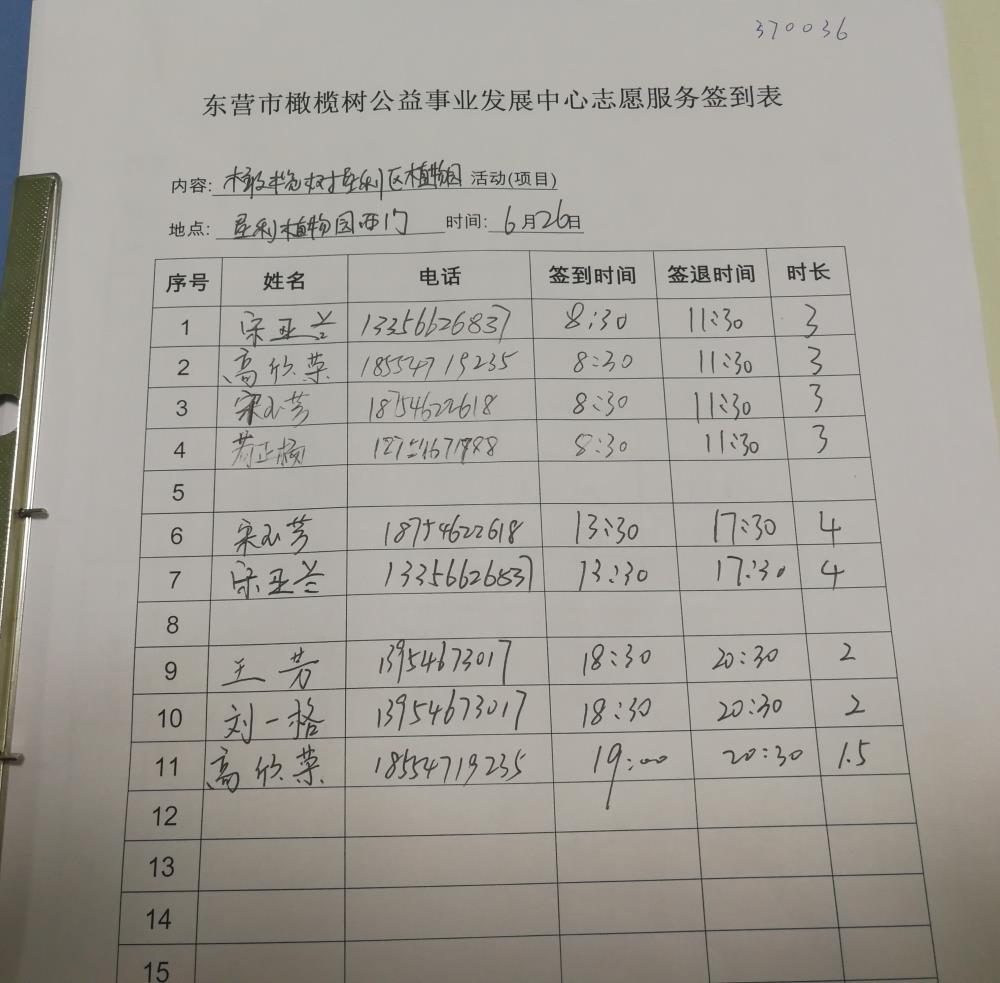 370036
东营市橄榄树公益事业发展中心志愿服务签到表
内容: 橄榄树垦利区植物园 活动(项目)
地点: 垦利植物园西门 时间: 6月26日
序号 姓名 电话 签到时间 签退时间 时长
1 宋亚兰 13356626837 8:30 11:30 3
2 高欣荣 18554719235 8:30 11:30 3
3 宋小芳 18754622618 8:30 11:30 3
4 8:30 11:30 3
5
6 宋小芳 18754622618 13:30 17:30 4
7 宋亚兰 13356626837 13:30 17:30 4
8
9 王芳 13954673017 18:30 20:30 2
10 刘一格 13954673017 18:30 20:30 2
11 高欣荣 18554719235 19:00 20:30 1.5
12
13
14
15